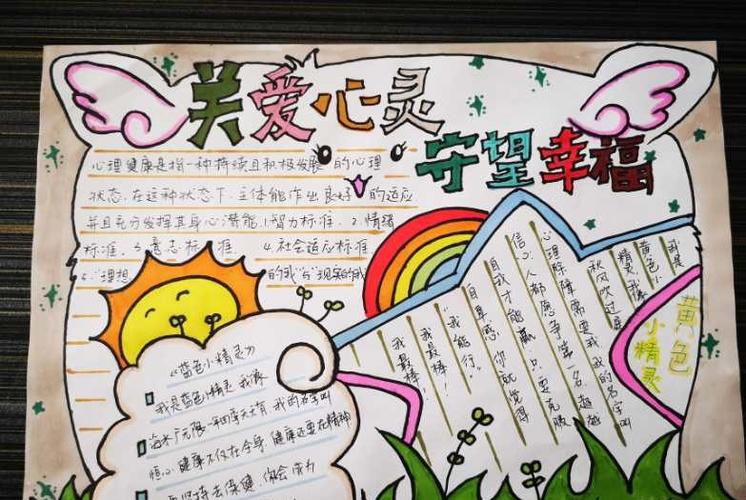 关爱心灵
守望幸福
心理健康是指一种持续且积极发展的心理
状态,在这种状态下,主体能作出良好的适应
并且充分发挥其身心潜能。1.智力标准、2.情绪
标准、3.意志标准、4.社会适应标准
5."理想的我"与"现实的我"
我是
黄色小
精灵,我像
秋风吹过
我的名字叫
心理除障需要我
信心,人都愿争第一名,超越
自我才能赢,只要克服
自卑感,你就觉得
"我能行"
我最棒!
我最棒!
黄色
小精灵
《蓝色小精灵》
我是蓝色小精灵 我像
海水广无限一和 我的名字叫
恒心,健康不仅在全身,健康还要在精神
坚持去保健,你会